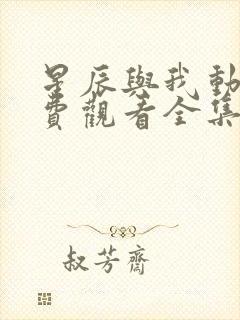 星辰與我動
費觀看全集
叔芳齋